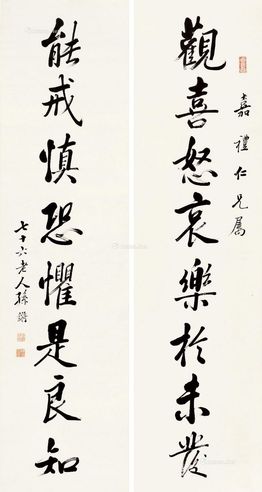 觀喜怒哀樂於未發
嘉禮仁兄屬
能戒慎恐懼是良知
七十六老人孫鏘